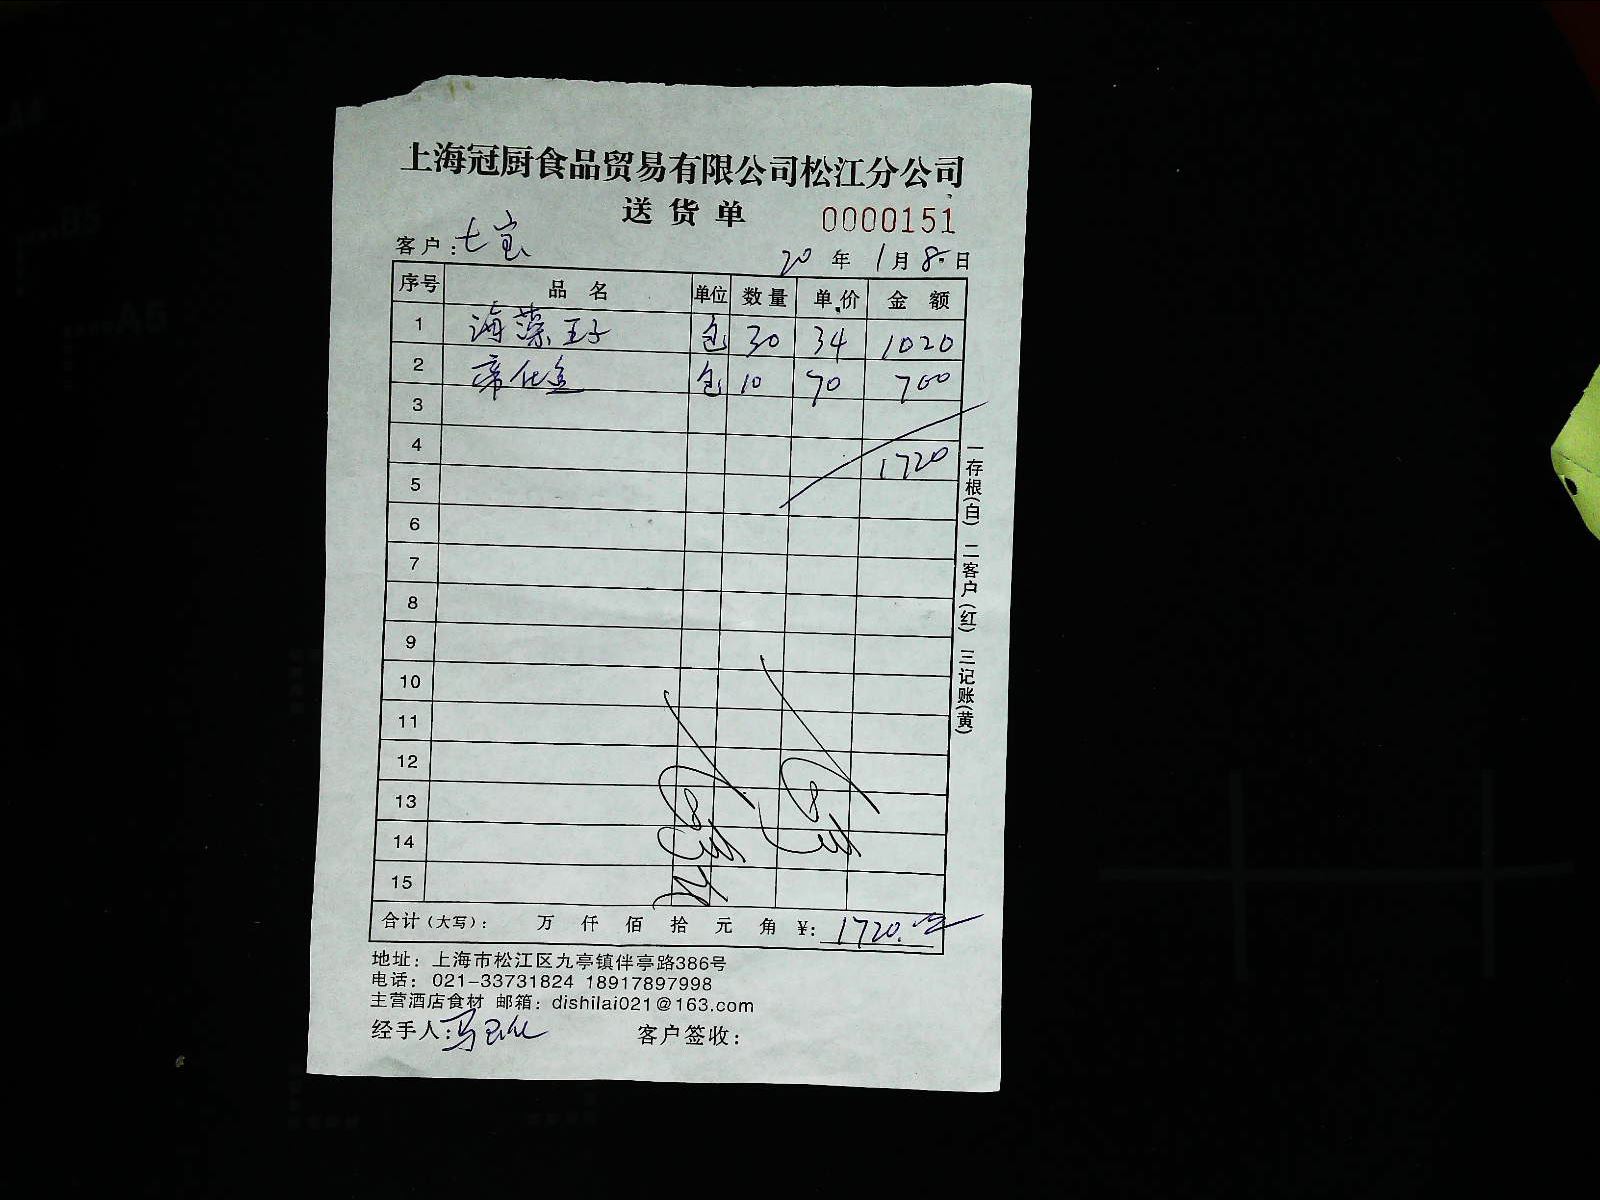 上海冠厨食品贸易有限公司松江分公司
送货单 0000151
客户：七宝 20年1月8日
序号 品名 单位 数量 单价 金额
1 海藻王子 包 30 34 1020
2 帝 包 10 70 700
3
4 1720
5
6
7
8
9
10
11
12
13
14
15
合计（大写）： 万 仟 佰 拾 元 角 ¥：1720.00
地址：上海市松江区九亭镇伴亭路386号
电话：021-33731824 18917897998
主营酒店食材 邮箱：dishilai021@163.com
经手人：马 客户签收：
一存根(白) 二客户(红) 三记账(黄)